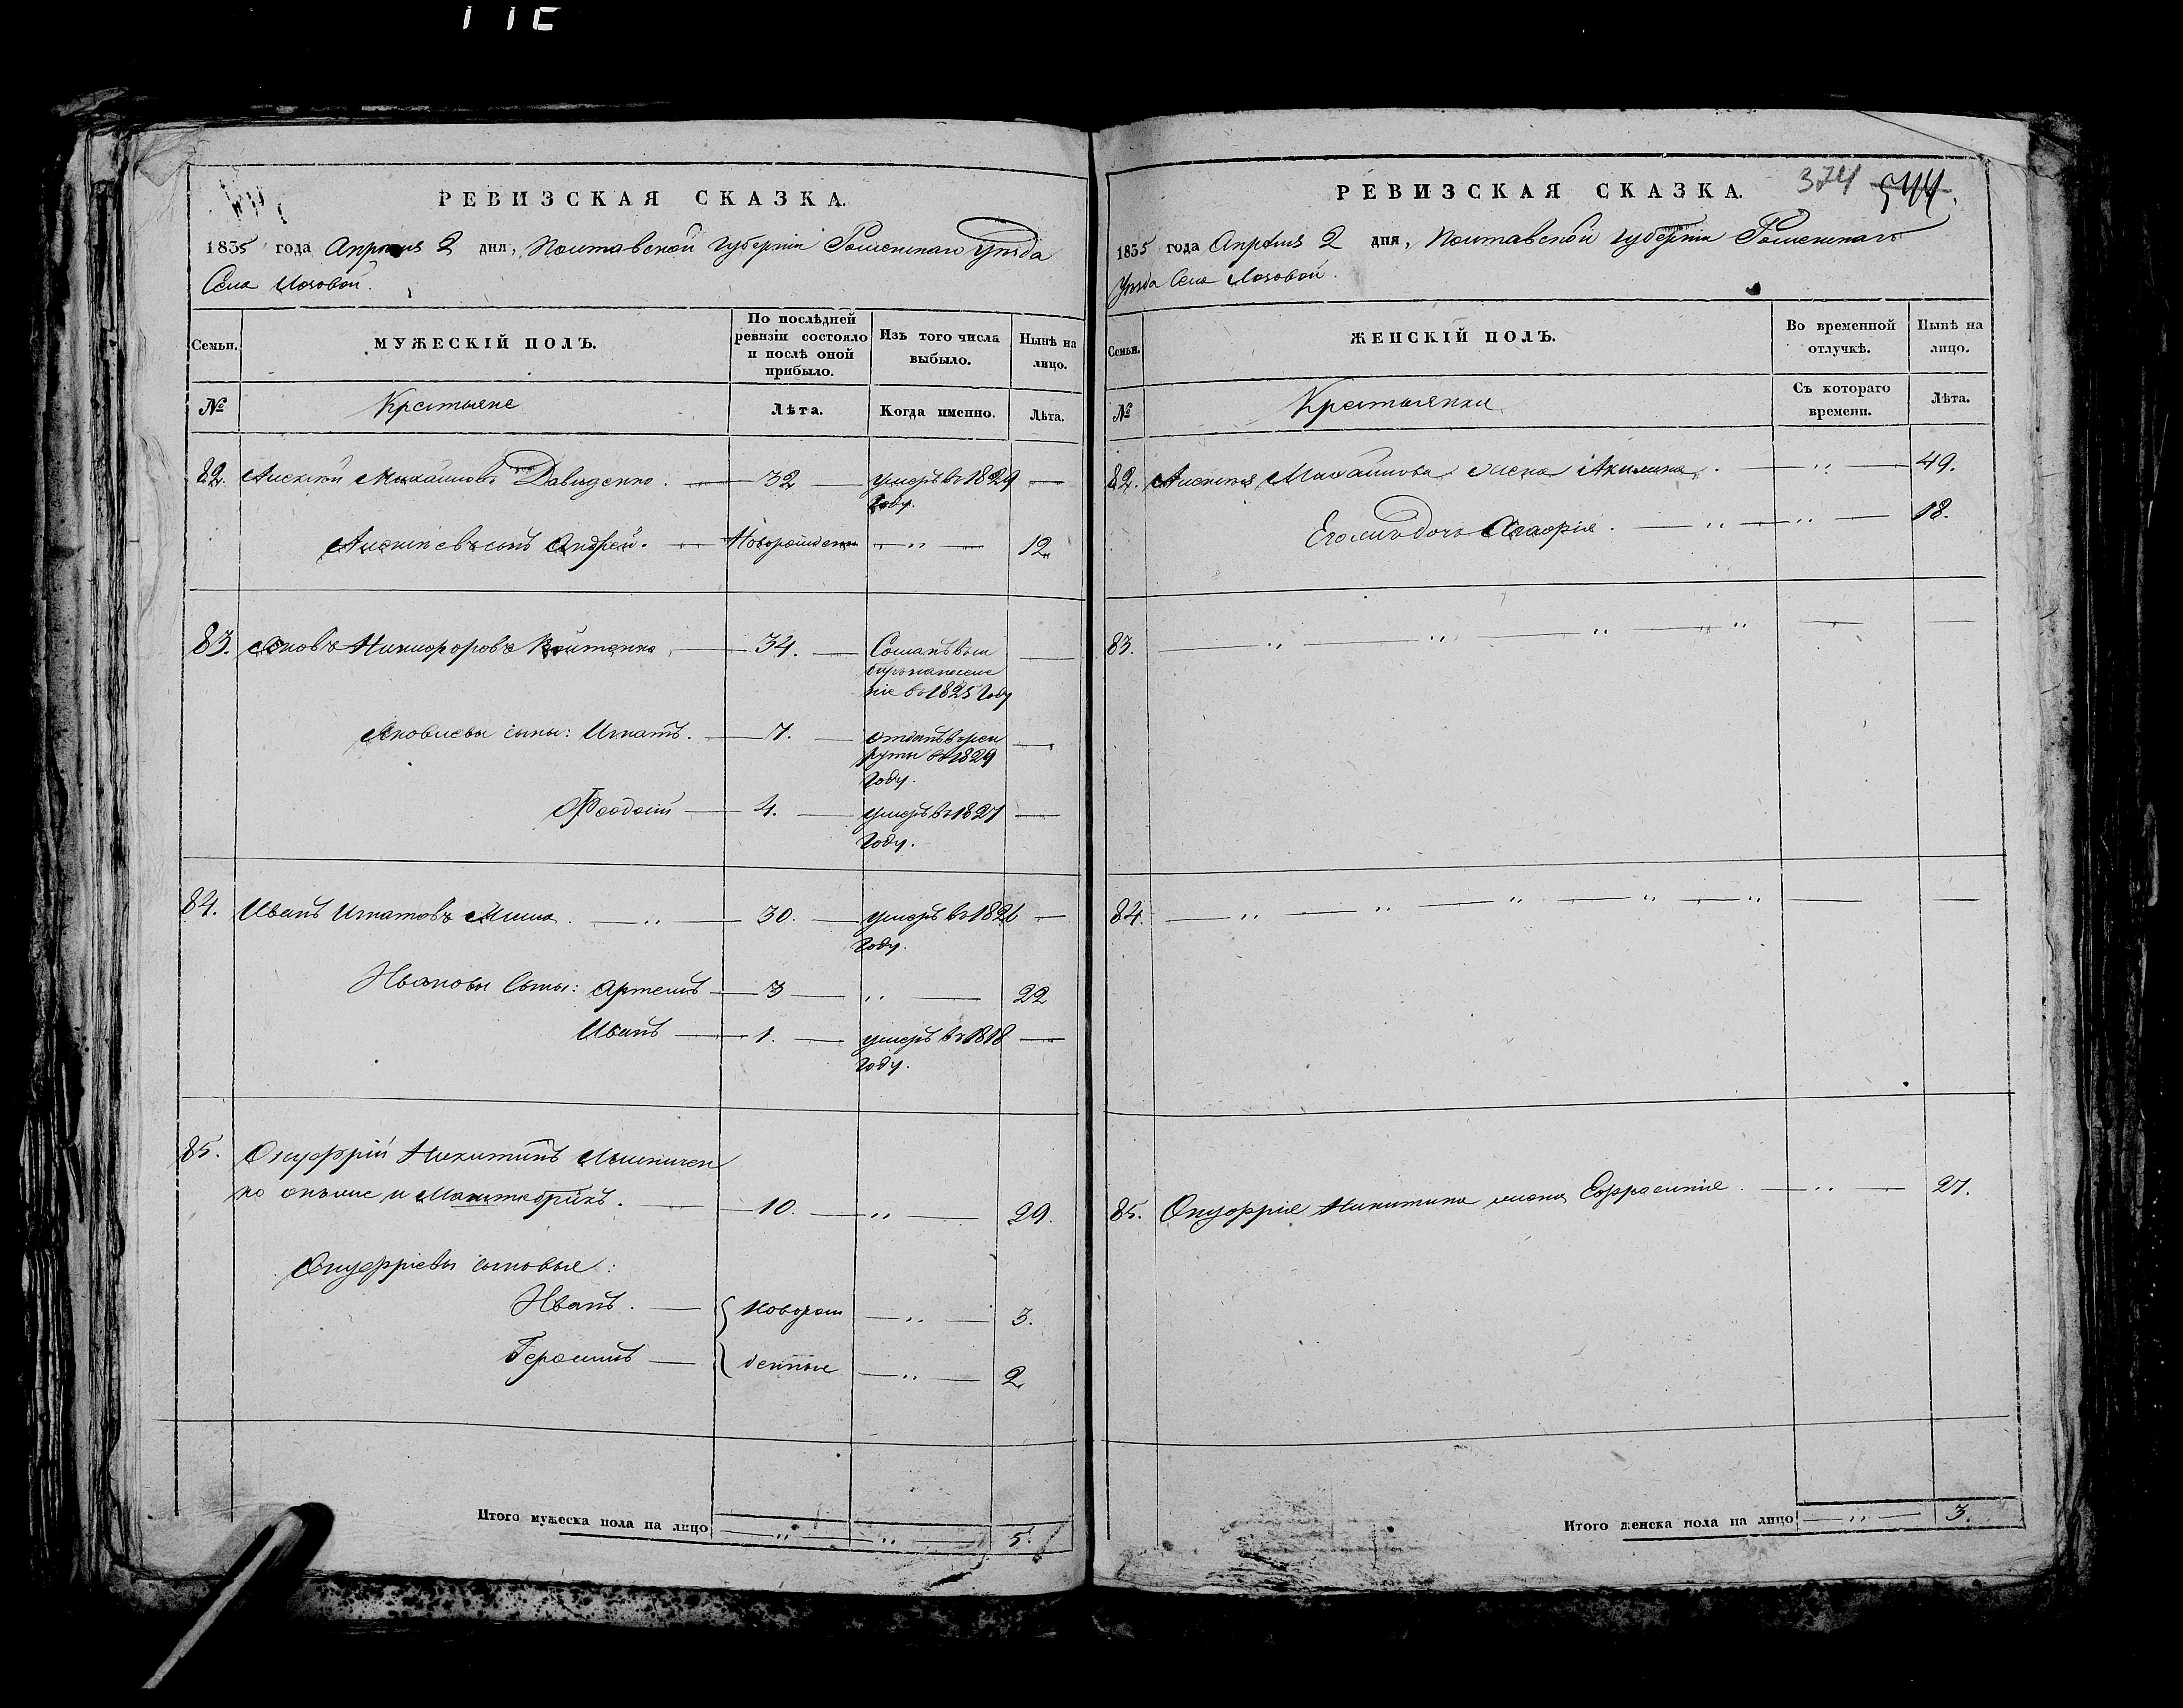 РЕВИЗСКАЯ СКАЗКА.
1835 года Апреля 2 дня, Полтавской губернии Роменскаго Уѣзда
Села Лозовой.
Семьи.
МУЖЕСКІЙ ПОЛЪ.
По послѣдней
ревизіи состояло
и послѣ оной
прибыло.
Изъ того числа
выбыло.
Нынѣ на
лицо.
№
Крестьяне
Лѣта.
Когда именно.
Лѣта.
82. Алексѣй Михайловъ Давиденко. 32 умеръ въ 1829
Году.
Алексѣевъ сынъ Андрей. Новорожденн 12
83. Яковъ Никифоровъ Войтенко 34. Сосланъ въ
Сибирь на поселе
ніе въ 1825 Году
Яковлевы сыны: Игнатъ. 7. отданъ в рек
руты въ 1829
Году.
Феодосій 4. умеръ въ 1827
Году.
84. Иванъ Игнатовъ 30. умеръ въ 1826
Году.
Ивановы Сыны: Артемъ 3 22
Иванъ 1. умеръ въ 1818
Году.
85. Онуфрій Никитинъ
10. 29.
Онуфріевы сыновья:
Иванъ. новорож 3.
Герасимъ денные 2
Итого мужеска пола на лицо 5.
РЕВИЗСКАЯ СКАЗКА. 374 544.
1835 года Апреля 2 дня, Полтавской губерніи Роменскаго
Уѣзда Села Лозовой.
Семьи.
ЖЕНСКІЙ ПОЛЪ.
Во временной
отлучкѣ.
Нынѣ на
лицо.
№
Крестьянки
Съ котораго
времени.
Лѣта.
82. Алексѣя Михайлова жена Акилина. 49.
Его дочь 18.
83.
84.
85. Онуфрія Никитина жена Ефросинія. 27.
Итого женска пола на лицо 3.